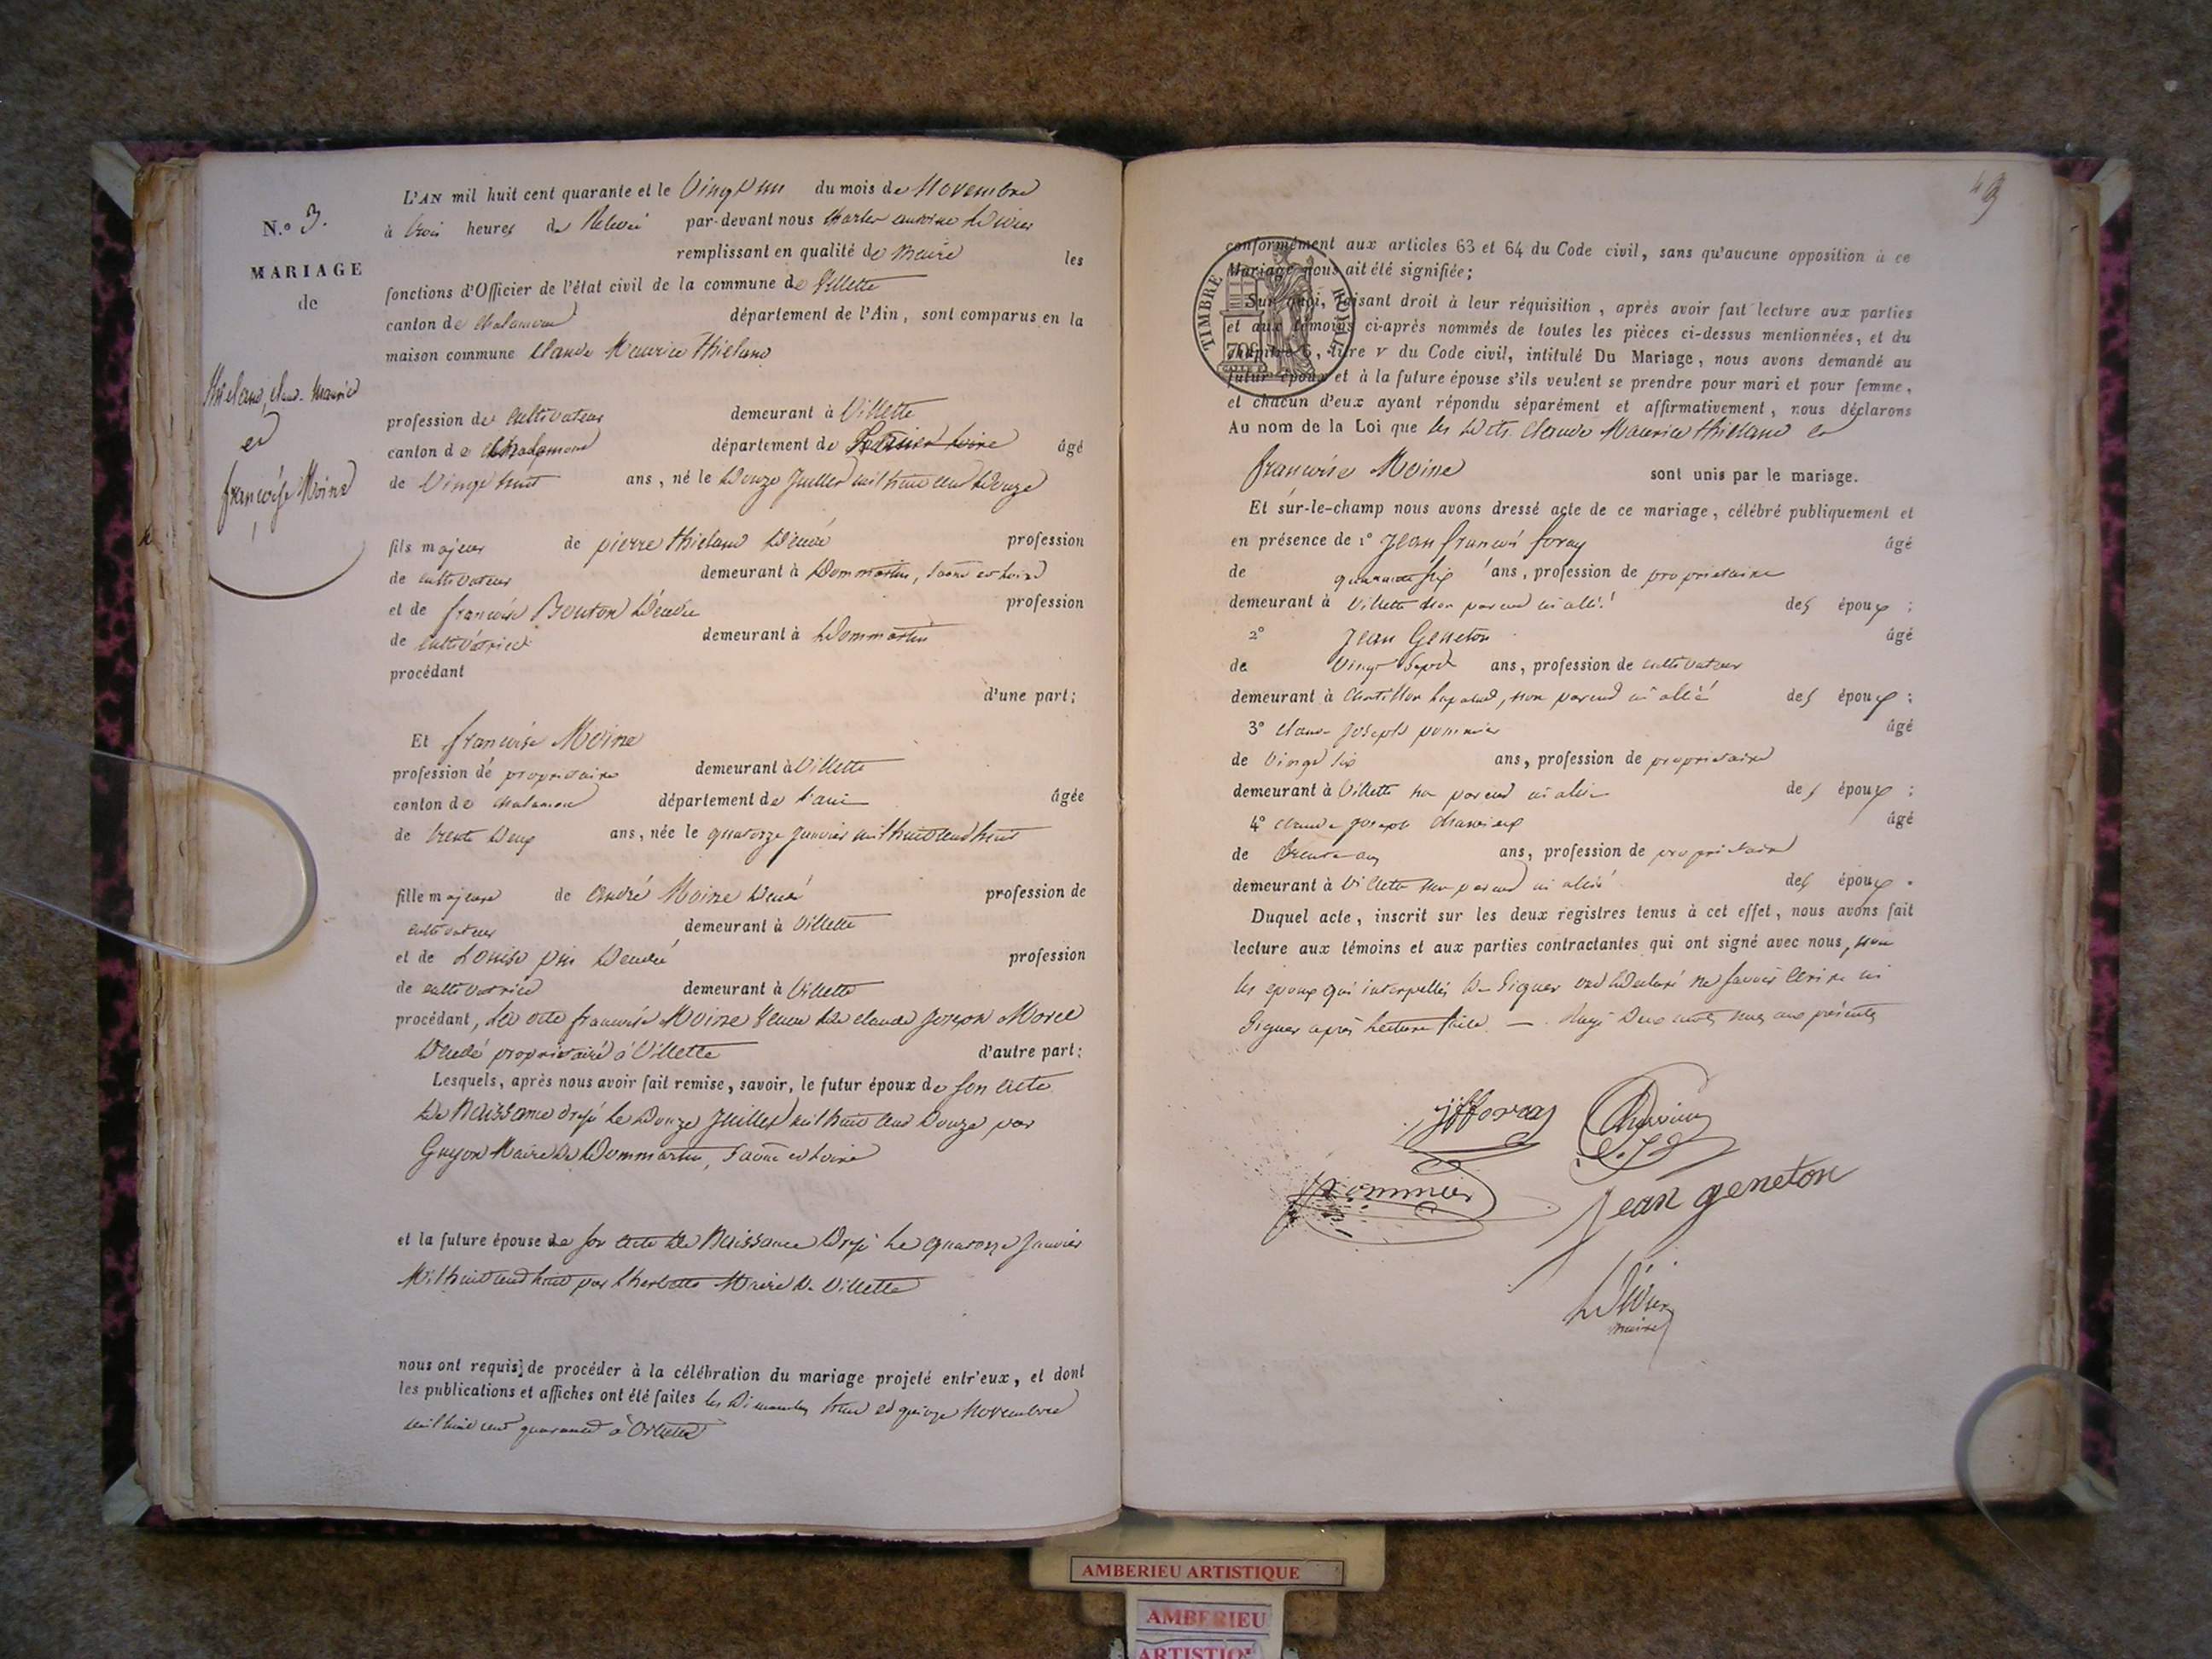 N.º 3.
MARIAGE
de
Thieland, Claud. Maurice
et
françoise Moine
L'AN mil huit cent quarante et le Vingt un du mois de Novembre
à trois heures de Relevée par-devant nous Charles antoine
remplissant en qualité de Maire les
fonctions d'Officier de l'état civil de la commune de Villette
canton de Chalamont département de l'Ain, sont comparus en la
maison commune Claude Maurice Thieland
profession de Cultivateur demeurant à Villette
canton de Chalamont département de âgé
de Vingt huit ans, né le Douze Juillet mil huit cent Douze
fils majeur de pierre Thieland Décédé profession
de cultivateur demeurant à Dommartin, Saône et Loire
et de françoise Bouton Décédée profession
de cultivatrice demeurant à Dommartin
procédant
d'une part;
Et françoise Moine
profession de propriétaire demeurant à Villette
canton de Chalamont département de l'ain âgée
de trente Deux ans, née le quatorze Janvier mil huit cent huit
fille majeure de André Moine Décédé profession de
cultivateur demeurant à Villette
et de Louise pin Décédée profession
de cultivatrice demeurant à Villette
procédant, françoise Moine Veuve de Claude Joseph Morel
Décédé propriétaire à Villette d'autre part;
Lesquels, après nous avoir fait remise, savoir, le futur époux de son acte
de Naissance Le Douze Juillet mil huit cent Douze par
Guyon Maire de Dommartin, Saône et Loire
et la future épouse de son acte de Naissance Le quatorze Janvier
Mil huit cent huit par Maire de Villette
nous ont requis de procéder à la célébration du mariage projeté entr'eux, et dont
les publications et affiches ont été faites les Dimanches huit et quinze Novembre
mil huit cent quarante à
49
conformément aux articles 63 et 64 du Code civil, sans qu'aucune opposition à ce
Mariage nous ait été signifiée;
TIMBRE ROYAL
70c
Sur quoi, faisant droit à leur réquisition, après avoir fait lecture aux parties
et aux témoins ci-après nommés de toutes les pièces ci-dessus mentionnées, et du
chapitre 6, titre V du Code civil, intitulé Du Mariage, nous avons demandé au
futur époux et à la future épouse s'ils veulent se prendre pour mari et pour femme,
et chacun d'eux ayant répondu séparément et affirmativement, nous déclarons
Au nom de la Loi que les Claude Maurice Thieland et
françoise Moine sont unis par le mariage.
Et sur-le-champ nous avons dressé acte de ce mariage, célébré publiquement et
en présence de 1º Jean françois foray âgé
de quarante six ans, profession de propriétaire
demeurant à Villette non parent ni allié des époux;
2º Jean Geneton âgé
de Vingt Sept ans, profession de cultivateur
demeurant à Chatillon Lapalud, non parent ni allié des époux;
3º Claude Joseph pommier âgé
de Vingt six ans, profession de propriétaire
demeurant à Villette non parent ni allié des époux;
4º Claude Joseph âgé
de ans, profession de propriétaire
demeurant à Villette non parent ni allié des époux.
Duquel acte, inscrit sur les deux registres tenus à cet effet, nous avons fait
lecture aux témoins et aux parties contractantes qui ont signé avec nous, non
les époux qui interpellés de Signer ont Déclaré ne Savoir Ecrire ni
Signer après Lecture faite. — Rayé Deux mots nuls aux présentes
jfforay
pommier
Jean geneton
maire
AMBERIEU ARTISTIQUE
AMBERIEU
ARTISTIQUE